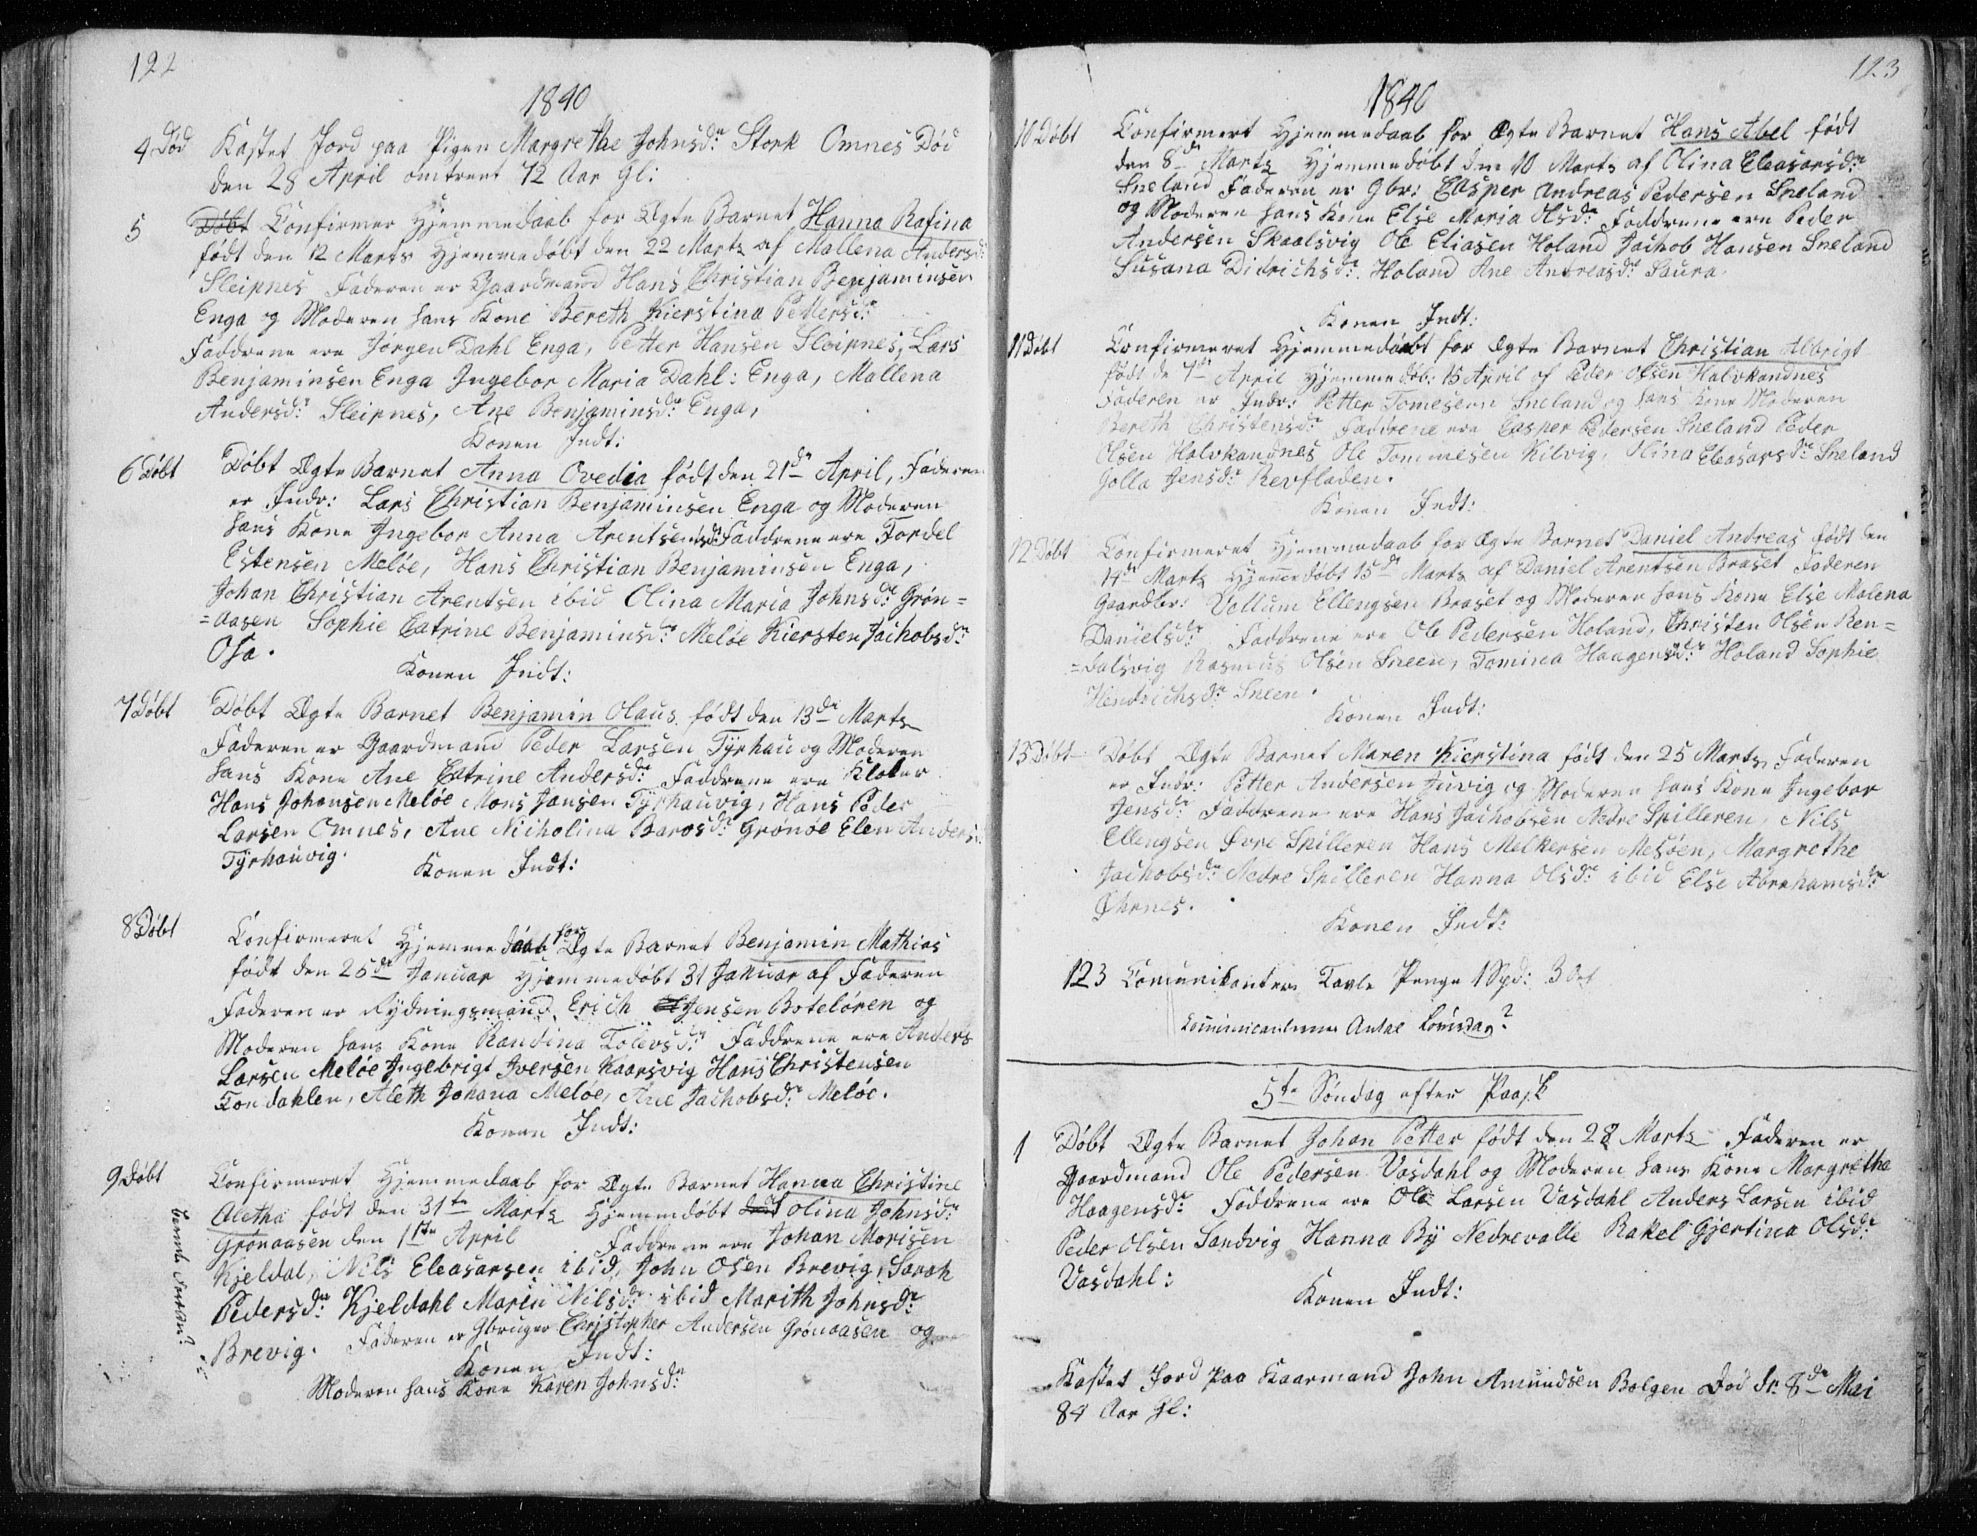 122
1840
4 Død Kastet Jord paa Pigen Margrethe Johnsdr: Stork Omnes Død
den 28 April omtrent 72 Aar Gl:
5 Døbt Confirmer Hjemmedaab for Ægte Barnet Hanna Rafina
født den 12 Marts Hjemmedøbt den 22 Marts af Mallena Andersdr:
Sleipnes Faderen er Gaardmand Hans Christian Benjaminsen
Enga og Moderen hans Kone Bereth Kierstina Pettersdr:
Faddrene ere Jørgen Dahl Enga, Petter Hansen Sleipnes, Lars
Benjaminsen Enga Ingebor Maria Dahl: Enga, Mallena
Andersdr: Sleipnes, Ane Benjaminsdr: Enga,
Konen Indt:
6 Døbt Døbt Ægte Barnet Anna Ovedia født den 21de April, Faderen
er Indr: Lars Christian Benjaminsen Enga og Moderen
hans Kone Ingebor Anna Arentsensdr: Faddrene ere Tordel
Estensen Meløe, Hans Christian Benjaminsen Enga,
Johan Christian Arentsen ibid Olina Maria Johnsdr: Grøn=
=aasen Sophie Catrine Benjaminsdr: Meløe Kiersten Jachobsdr:
Osa.
Konen Indt:
7 Døbt Døbt Ægte Barnet Benjamin Olaus født den 13de Marts
Faderen er Gaardmand Peder Larsen Tyrhau og Moderen
hans Kone Ane Catrine Andersdr: Faddrene ere Kloker
Hans Johansen Meløe Mons Jansen Tyrhauvig, Hans Peder
Larsen Omnes, Ane Nicholina Barosdr: Grønøe Elen Anders:
Tyrhauvig.
Konen Indt:
8 Døbt Confirmeret Hjemmedaab for Ægte Barnet Benjamin Mathias
født den 25de Januar Hjemmedøbt 31 Januar af Faderen
Faderen er Rydningsmand Erich Jensen Boteløren og
Moderen hans Kone Randina Tolevsdr: Faddrene ere Anders
Larsen Meløe Ingebrigt Iversen Kaarsvig Hans Christensen
Tondahlen, Aleth Johana Meløe, Ane Jachobsdr: Meløe.
Konen Indt:
9 Døbt Confirmeret Hjemmedaab for Ægte Barnet Hanna Christine
Aletha født den 31te Marts Hjemmdøbt Olina Johnsdr:
Grønaasen den 11te April Faddrene ere Johan Morisen
Kjeldal, Nils Eleasarsen ibid, John Olsen Brevig, Sarah
Pedersdr: Kjeldahl Maren Nilsdr: ibid Marith Johnsdr:
Brevig. Faderen er Gbruger Christopher Andersen Grønaasen og
Konen Indt:
Moderen hans Kone Karen Johnsdr:
123
1840
10 Døbt Confirmert Hjemmedaab for Ægte Barnet Hans Abel født
den 8de Marts Hjemmedøbt den 10 Marts af Olina Eleasarsdr:
Sneland Faderen er Gbr: Casper Andreas Pedersen Sneland
og Moderen hans Kone Else Maria Olsdr: Faddrene ere Peder
Andersen Skaalsvig Ole Eliasen Holand Jachob Hansen Sneland
Susana Didrichsdr: Holand Ane Andreasdr: Saura.
Konen Indt:
11 Døbt Confirmeret Hjemmedaabt for Ægte Barnet Christian Albrigt
født de 7de April Hjemmedøb: 15 April af Peder Olsen Halvkandnes
Faderen er Indr: Petter Tomesen Sneland og hans Kone Moderen
Bereth Christensdr: Faddrene ere Casper Pedersen Sneland Peder
Olsen Halvkandnes Ole Tommesen Kilvig, Olina Eleasarsdr: Sneland
Golla Jensdr: Revfladen.
Konen Indt:
12 Døbt Confirmeret Hjemmedaab for Ægte Barnet Daniel Andreas født den
14de Marts Hjemmedøbt 15de Marts af Daniel Arentsen Braset Faderen
Gaardbr: Vollum Ellengsen Braset og Moderen hans Kone Else Malena
Danielsdr: Faddrene ere Ole Pedersen Holand, Christen Olsen Ren=
=dalsvig Rasmus Olsen Sneen, Tomina Haagensdr: Holand Sophie
Hendrichsdr: Sneen.
Konen Indt:
13 Døbt Døbt Ægte Barnet Maren Kierstina født den 25 Marts, Faderen
er Indr: Petter Andersen Juvig og Moderen hans Kone Ingebor
Jensdr: Faddrene ere Hans Jachobsen Nedre Spilleren, Nils
Ellengsen Øvre Spilleren Hans Melkersen Mesøen, Margrethe
Jachobsdr: Nedre Spilleren Hanna Olsdr: ibid Else Abrahamsdr:
Øhrnes.
Konen Indt:
123 Comunikanter Tavle Penge 1 Spd: 3 Ort
Comunicanternes Antal
5te Søndag efter Paask
1 Døbt Ægte Barnet Johan Petter født den 28 Marts Faderen er
Gaardmand Ole Pedersen Vasdahl og Moderen hans Kone Margretha
Haagensdr: Faddrene ere Ole Larsen Vasdahl Anders Larsen ibid
Peder Olsen Sandvig Hanna By Nedrevalle Rakel Gjertina Olsdr:
Vasdahl:
Konen Indt:
Kastet Jord paa Kaarmand John Amundsen Bolgen Død dn 8de Mai
84 Aar Gl: